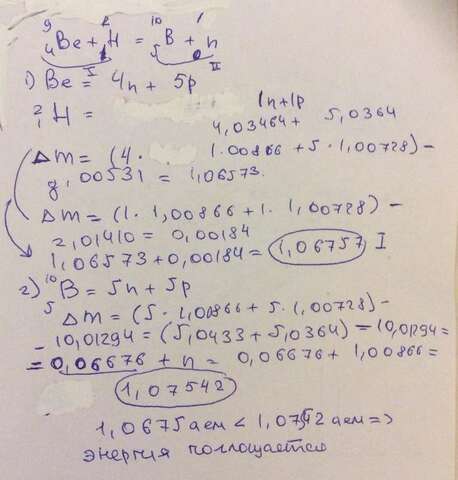 ⁹₄Be + ²₁H = ¹⁰₅B + ¹n
I II
1) Be = 4n + 5p
²₁H = 1n + 1p
4,03464 + 5,0364
Δm = (4 · 1.00866 + 5 · 1,00728) –
9,00531 = 1,06573.
Δm = (1 · 1,00866 + 1 · 1,00728) –
2,01410 = 0,00184
1,06573 + 0,00184 = 1,06757 I
2) ¹⁰₅B = 5n + 5p
Δm = (5 · 1,00866 + 5 · 1,00728) –
– 10,01294 = (5,0433 + 5,0364) – 10,01294 =
= 0,06676 + n = 0,06676 + 1,00866 =
1,07542
1,0675 аем < 1,0752 аем =>
энергия поглощается